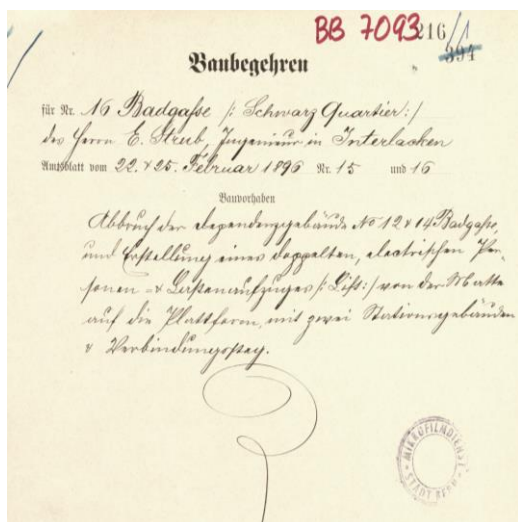 BB 7093
216/1
394
Baubegehren
für Nr. 16 Badgasse /: Schwarz Quartier :/
des Herrn E. Strub, Ingenieur in Interlacken
Amtsblatt vom 22. & 25. Februar 1896 Nr. 15 und 16
Bauvorhaben
Abbruch der dependenzgebäude No 12 & 14 Badgasse,
und Erstellung eines doppelten, electrischen Per-
sonen- & Lastenaufzuges /: Lift :/ von der Matte
auf die Plattform, mit zwei Stationsgebäuden
& Verbindungssteg.
MIKROFILMDIENST
STADT BERN